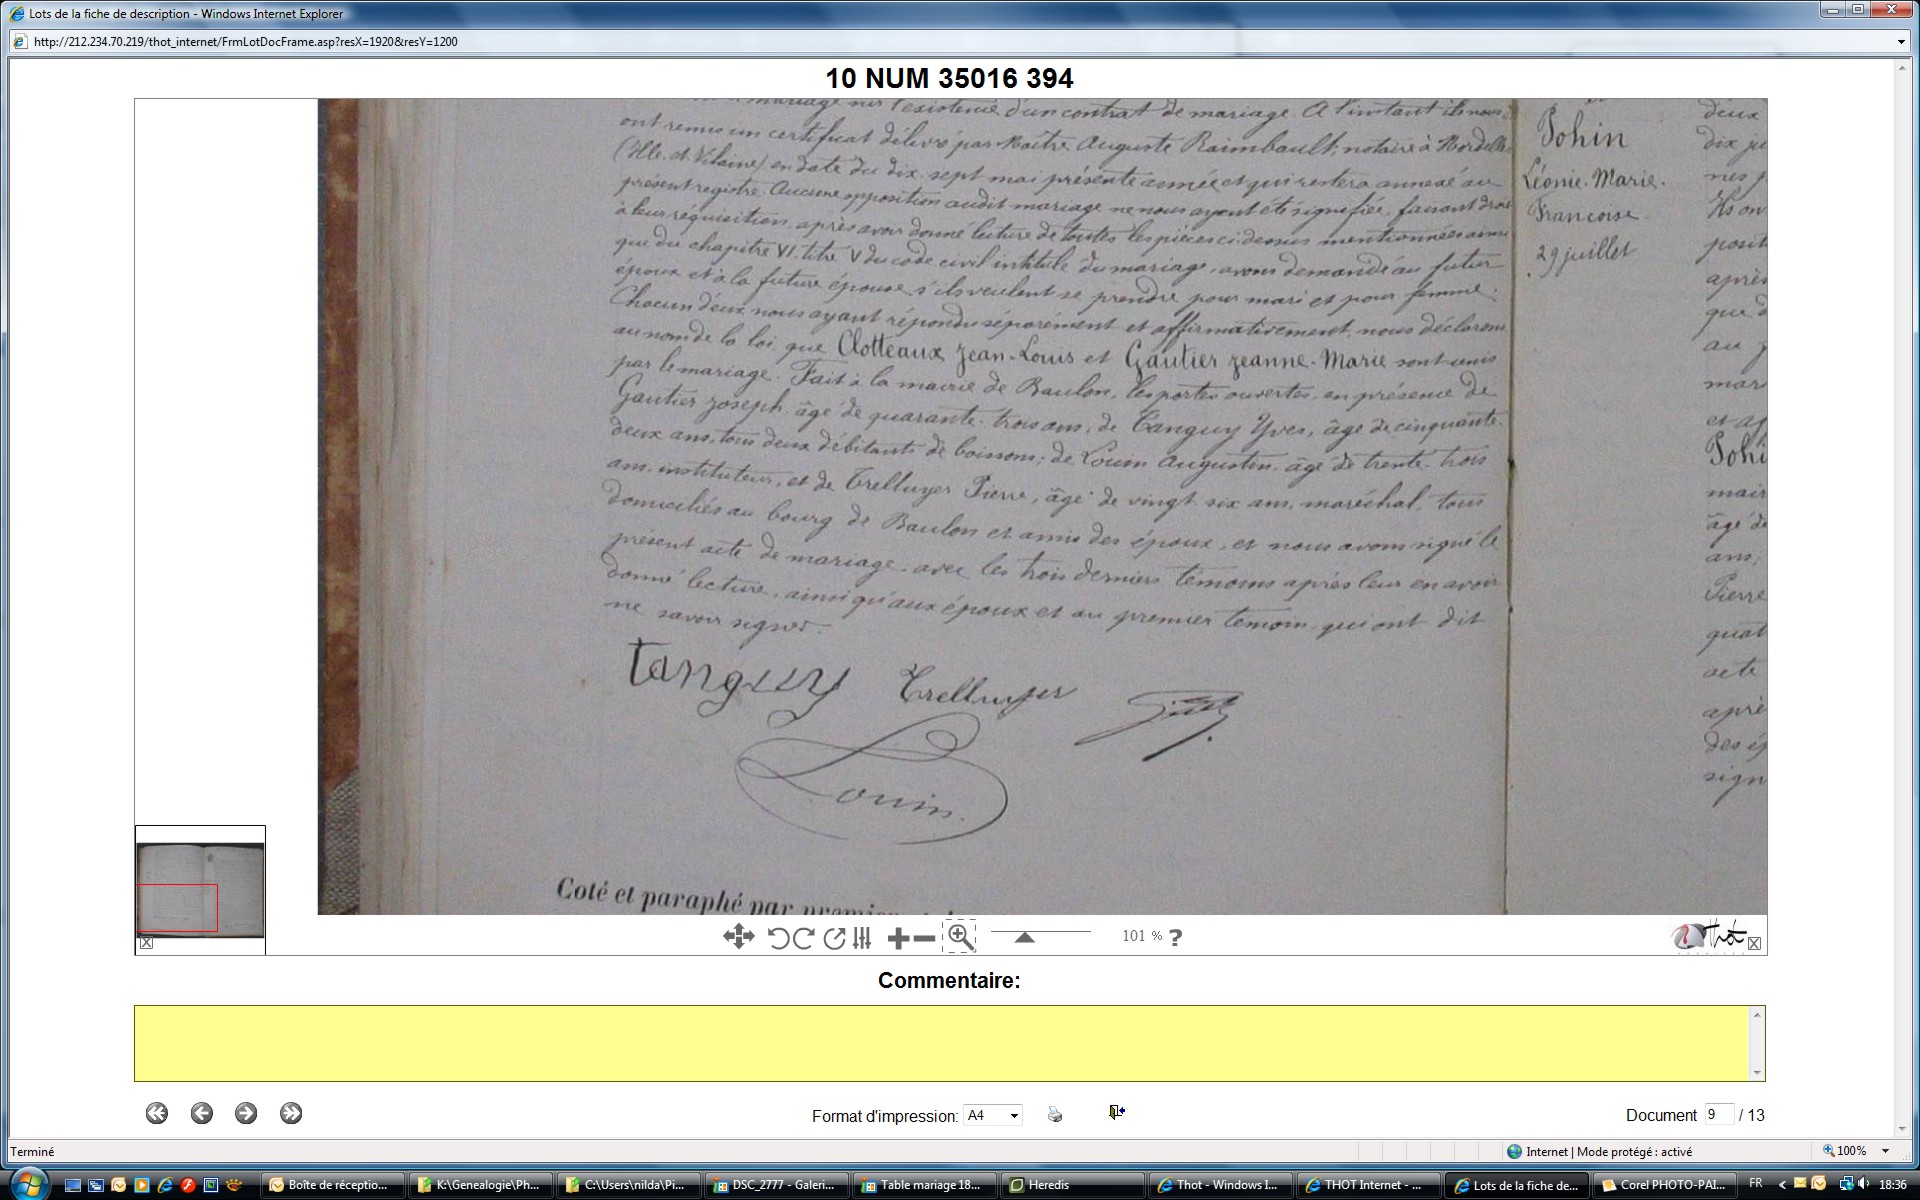 Lots de la fiche de description - Windows Internet Explorer
http://212.234.70.219/thot_internet/FrmLotDocFrame.asp?resX=1920&resY=1200
10 NUM 35016 394
mariage sur l'existence d'un contrat de mariage. A l'instant ils nous
ont remis un certificat délivré par Maître Auguste Raimbault, notaire à Mordelles
(Ille-et-Vilaine) en date du dix-sept mai présente année et qui restera annexé au
présent registre. Aucune opposition audit mariage ne nous ayant été signifiée, faisant droit
à leur réquisition, après avoir donné lecture de toutes les pièces ci-dessus mentionnées ainsi
que du chapitre VI titre V du code civil intitulé du mariage, avons demandé au futur
époux et à la future épouse s'ils veulent se prendre pour mari et pour femme.
Chacun d'eux nous ayant répondu séparément et affirmativement, nous déclarons
au nom de la loi que Clotteaux Jean-Louis et Gautier Jeanne-Marie sont unis
par le mariage. Fait à la mairie de Baulon, les portes ouvertes, en présence de
Gautier Joseph, âgé de quarante-trois ans, de Tanguy Yves, âgé de cinquante-
deux ans, tous deux débitants de boissons; de Louin Augustin, âgé de trente-trois
ans, instituteur, et de Trelluyer Pierre, âgé de vingt-six ans, maréchal, tous
domiciliés au bourg de Baulon et amis des époux, et nous avons signé le
présent acte de mariage avec les trois derniers témoins après leur en avoir
donné lecture, ainsi qu'aux époux et au premier témoin, qui ont dit
ne savoir signer.
Tanguy Trelluyer
Louin.
Coté et paraphé par premier
Pohin
Léonie-Marie-
Francoise
29 juillet
deux
dix ju
nes p
Ils on
posit
après
que d
au
mar
et a
Pohi
mair
âgé de
ans;
Pierre
quat
acte
apré
des é
sign
101 % ?
Thot
Commentaire:
Format d'impression: A4
Document 9 / 13
Terminé
Internet | Mode protégé : activé
100%
Boîte de réceptio...
K:\Genealogie\Ph...
C:\Users\nilda\Pi...
DSC_2777 - Galeri...
Table mariage 18...
Heredis
Thot - Windows I...
THOT Internet - ...
Lots de la fiche de...
Corel PHOTO-PAI...
FR
18:36